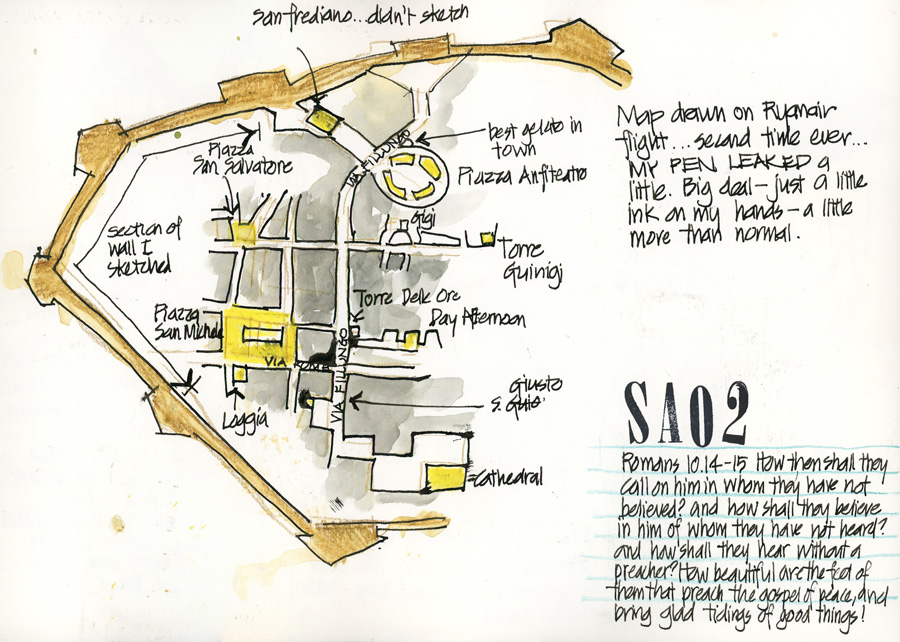 San Frediano...didn't sketch
Map drawn on Ryanair
flight...second time ever...
MY PEN LEAKED a
little. Big deal - just a little
ink on my hands - a little
more than normal.
best gelato in
town
Piazza Anfiteatro
VIA FILLUNGO
Piazza
San Salvatore
section of
wall I
sketched
Gigi
Torre
Guinigi
Torre Delle Ore
Day Afternoon
Piazza
San Michele
VIA ROMA
VIA FILLUNGO
Loggia
Giusto
S.
Cathedral
SA02
Romans 10.14-15 How then shall they
call on him in whom they have not
believed? and how shall they believe
in him of whom they have not heard?
and how shall they hear without a
preacher? How beautiful are the feet of
them that preach the gospel of peace, and
bring glad tidings of good things!